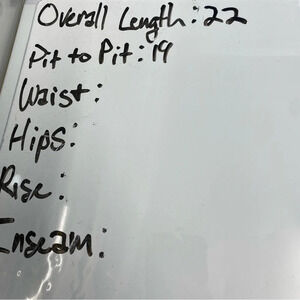 Overall Length: 22
Pit to Pit: 19
Waist:
Hips:
Rise:
Inseam: